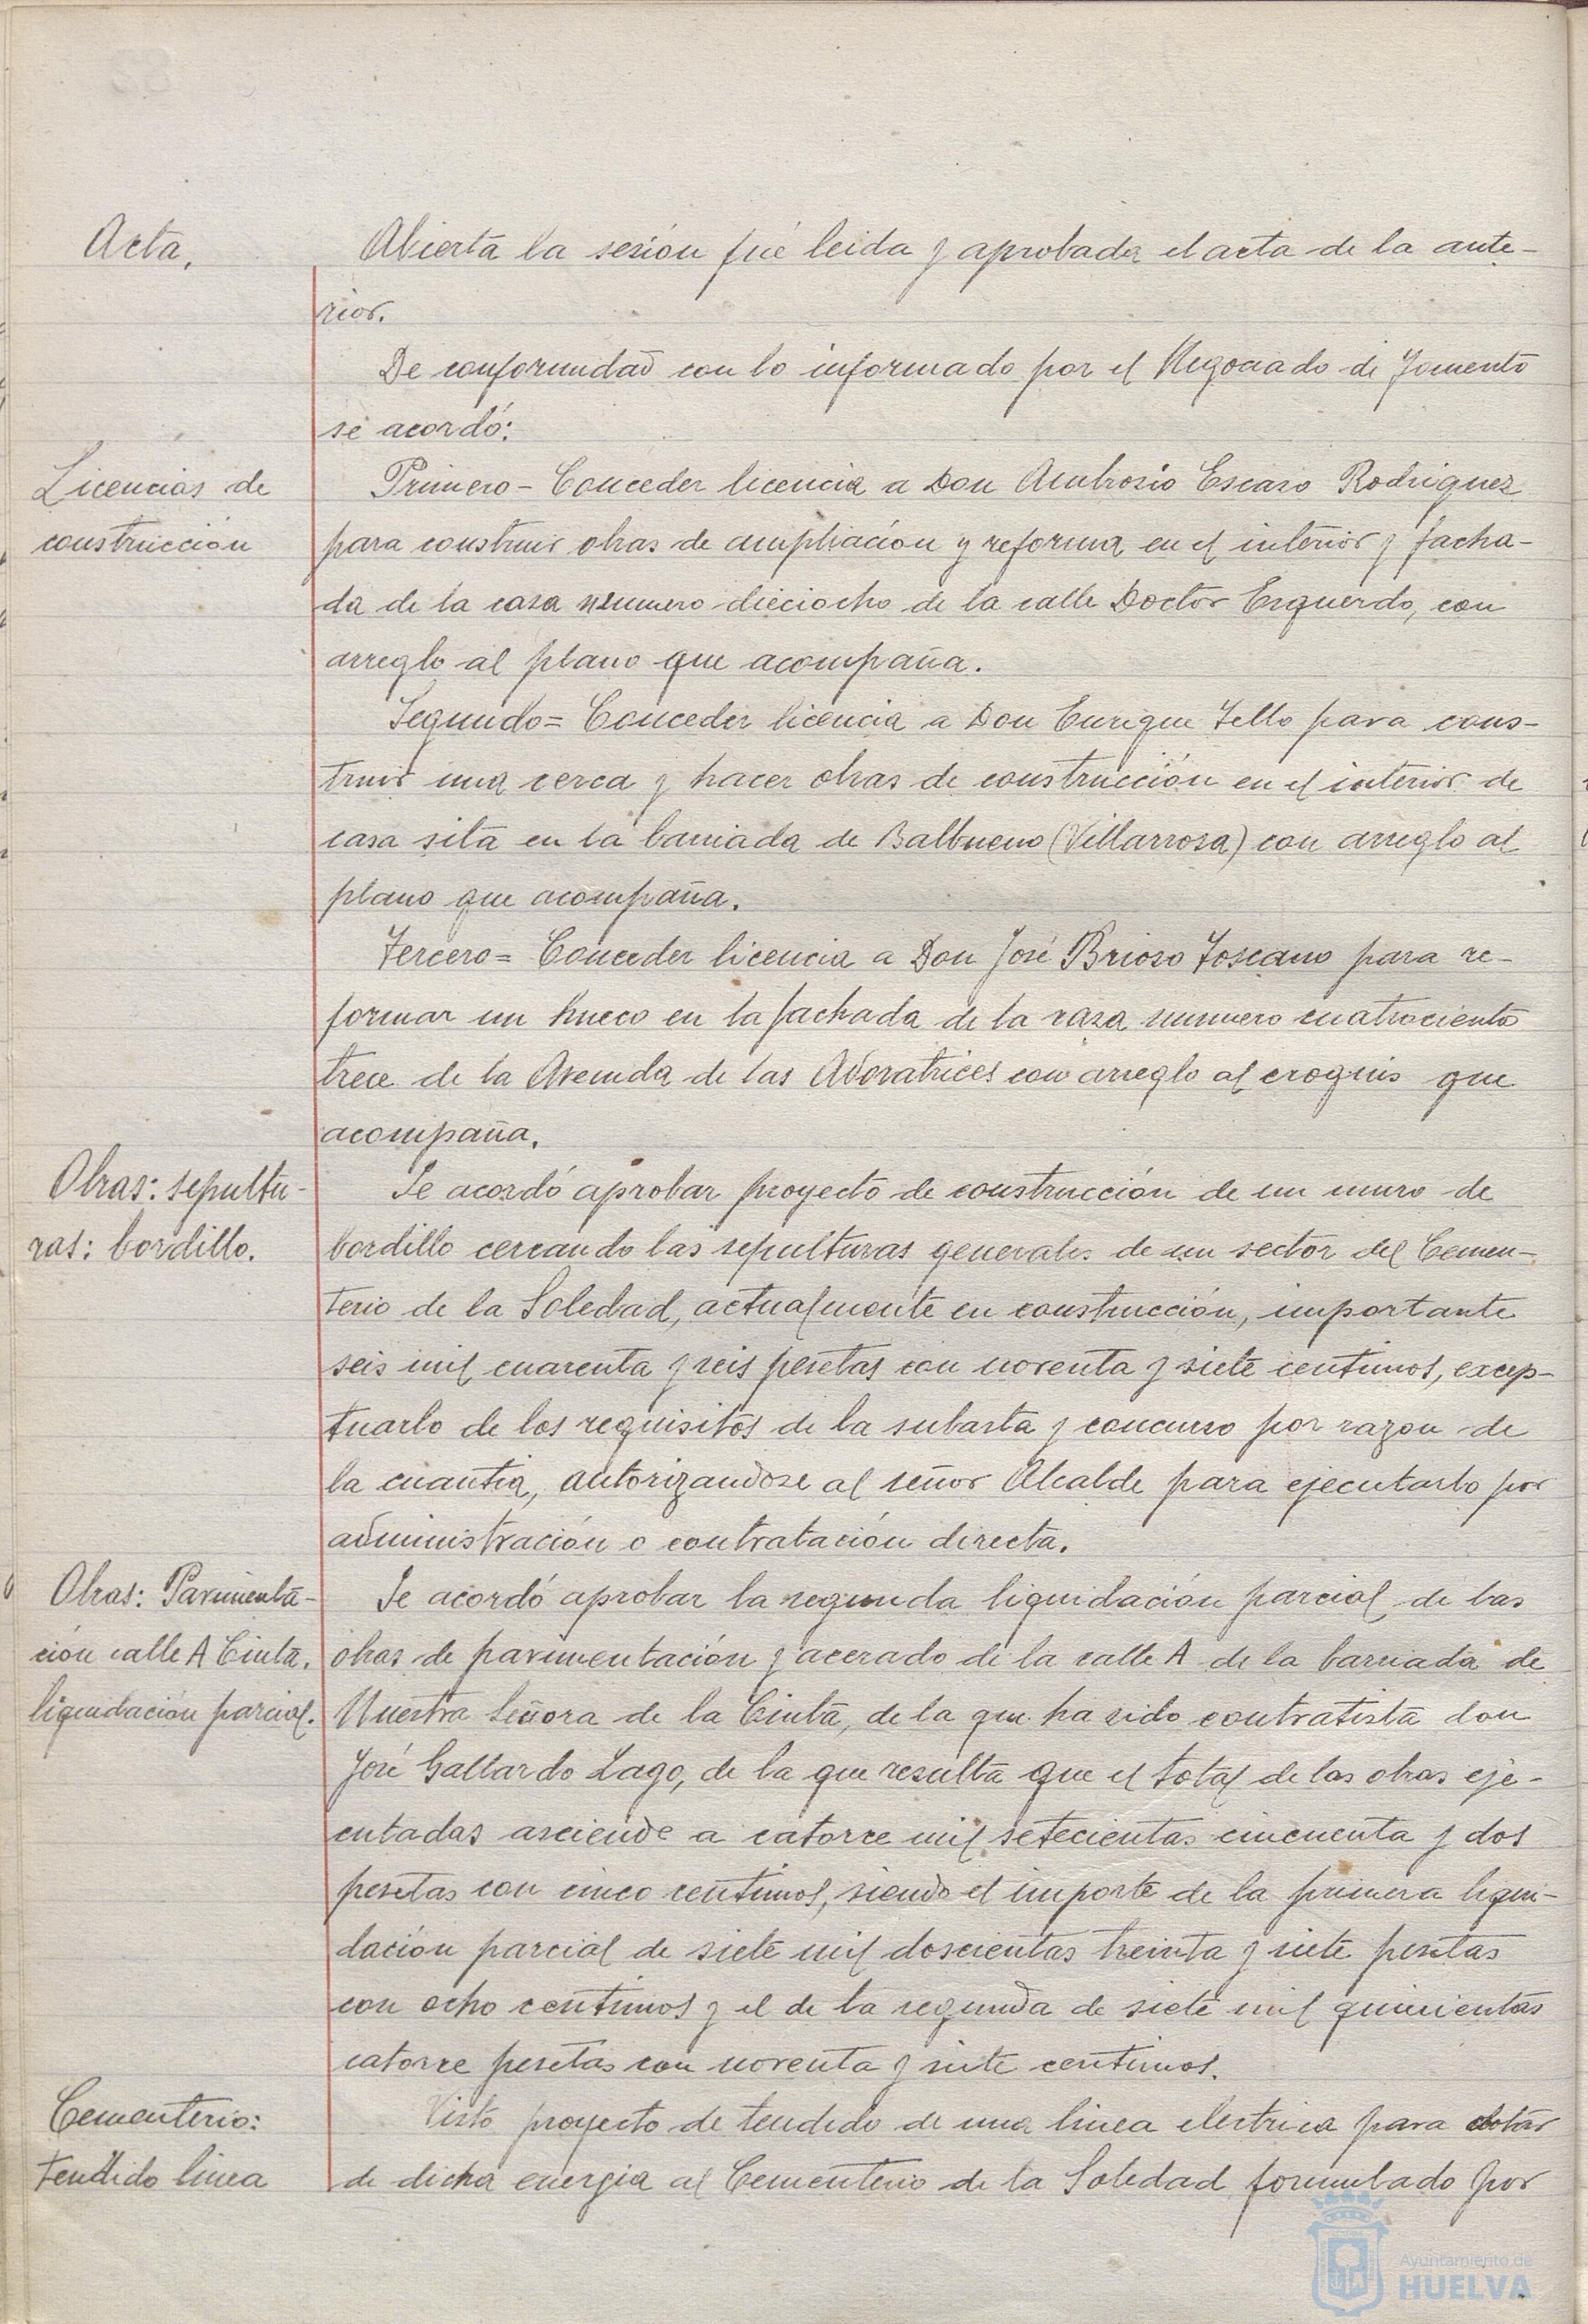 Acta,
Abierta la sesión fué leida y aprobada el acta de la ante-
rior.
De conformidad con lo informado por el Negociado de Fomento
se acordó:
Licencias de
construcción
Primero - Conceder licencia a Don Ambrosio Escaso Rodriguez
para construir obras de ampliación y reforma en el interior y facha-
da de la casa numero dieciocho de la calle Doctor Esquerdo, con
arreglo al plano que acompaña.
Segundo = Conceder licencia a Don Enrique Tello para cons-
truir una cerca y hacer obras de construcción en el interior de
casa sita en la barriada de Balbueno (Villarrosa) con arreglo al
plano que acompaña.
Tercero = Conceder licencia a Don José Brioso Toscano para re-
formar un hueco en la fachada de la casa numero cuatrociento
trece de la Avenida de las Adoratrices con arreglo al croquis que
acompaña.
Obras: sepultu-
ras: bordillo.
Se acordó aprobar proyecto de construcción de un muro de
bordillo cercando las sepulturas generales de un sector del Cemen-
terio de la Soledad, actualmente en construcción, importante
seis mil cuarenta y seis pesetas con noventa y siete centimos, excep-
tuarlo de los requisitos de la subasta y concurso por razon de
la cuantia, autorizandose al señor Alcalde para ejecutarlo por
administración o contratación directa.
Obras: Pavimenta-
ción calle A Cinta.
liquidación parcial.
Se acordó aprobar la segunda liquidación parcial de las
obras de pavimentación y acerado de la calle A de la barriada de
Nuestra Señora de la Cinta, de la que ha sido contratista don
José Gallardo Lago, de la que resulta que el total de las obras eje-
cutadas asciende a catorce mil setecientas cincuenta y dos
pesetas con cinco centimos, siendo el importe de la primera liqui-
dación parcial de siete mil doscientas treinta y siete pesetas
con ocho centimos y el de la segunda de siete mil quinientas
catorce pesetas con noventa y siete centimos.
Cementerio:
tendido linea
Visto proyecto de tendido de una linea electrica para dotar
de dicha energia al Cementerio de la Soledad formulado por
Ayuntamiento de
HUELVA